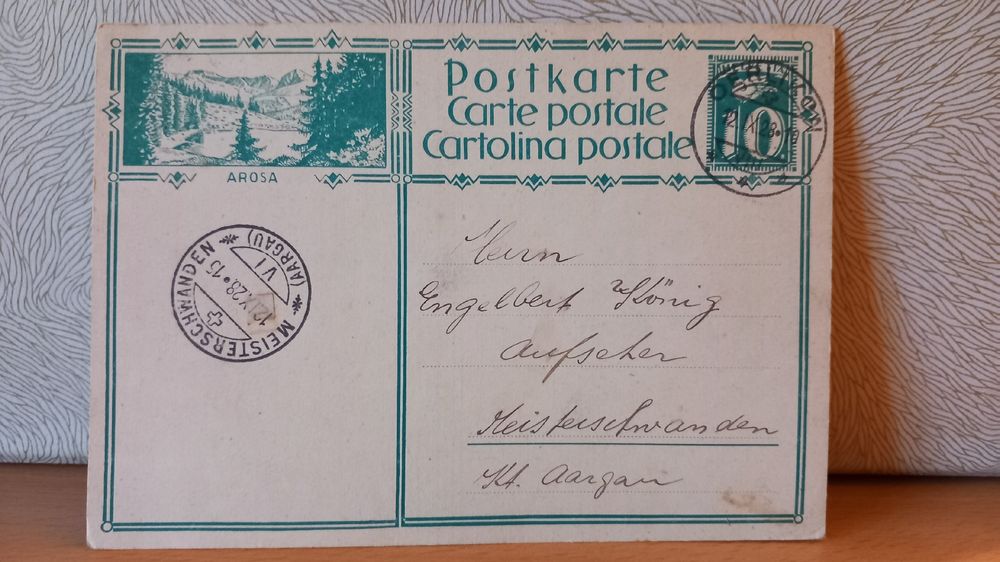 Postkarte
Carte postale
Cartolina postale
AROSA
10
OERLIKON
12.X.28
MEISTERSCHWANDEN
(AARGAU)
VI
12.X.28•15
Herrn
Engelbert König
Aufseher
Meisterschwanden
Kt. Aargau